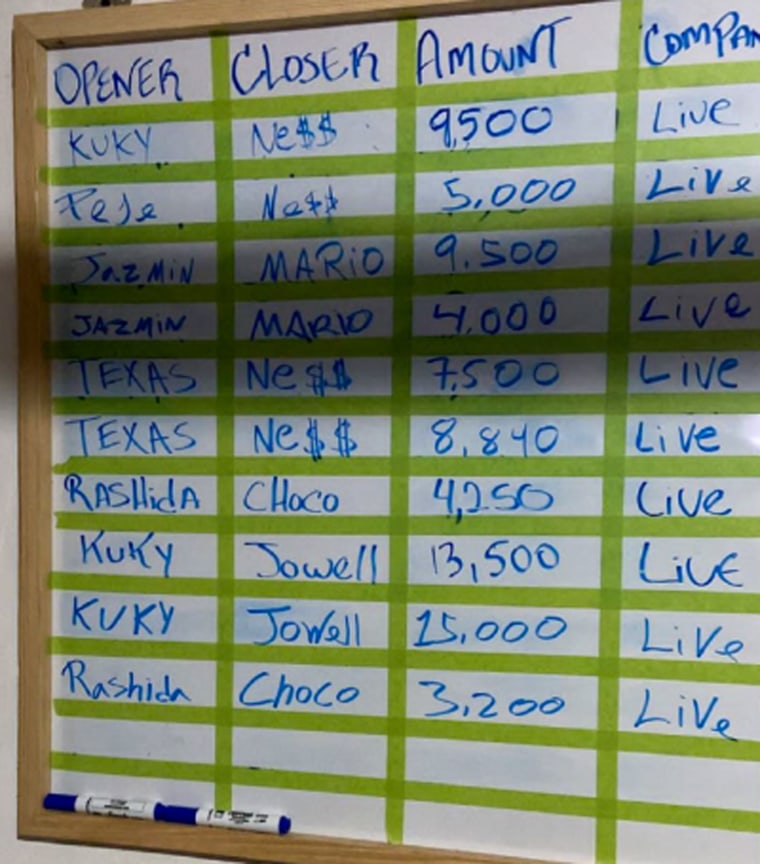 OPENER CLOSER AMOUNT COMPAN
KUKY Ne$$ 9,500 Live
PeJe Ne$$ 5,000 Live
JazMiN MARiO 9.500 Live
JAZMiN MARIO 4,000 Live
TEXAS Ne$$ 7,500 Live
TEXAS Ne$$ 8,840 Live
RASHidA CHoco 4,250 Live
KuKy Jowell 13,500 LiVE
KUKY JoWell 15,000 LiVe
Rashida Choco 3,200 LiVe